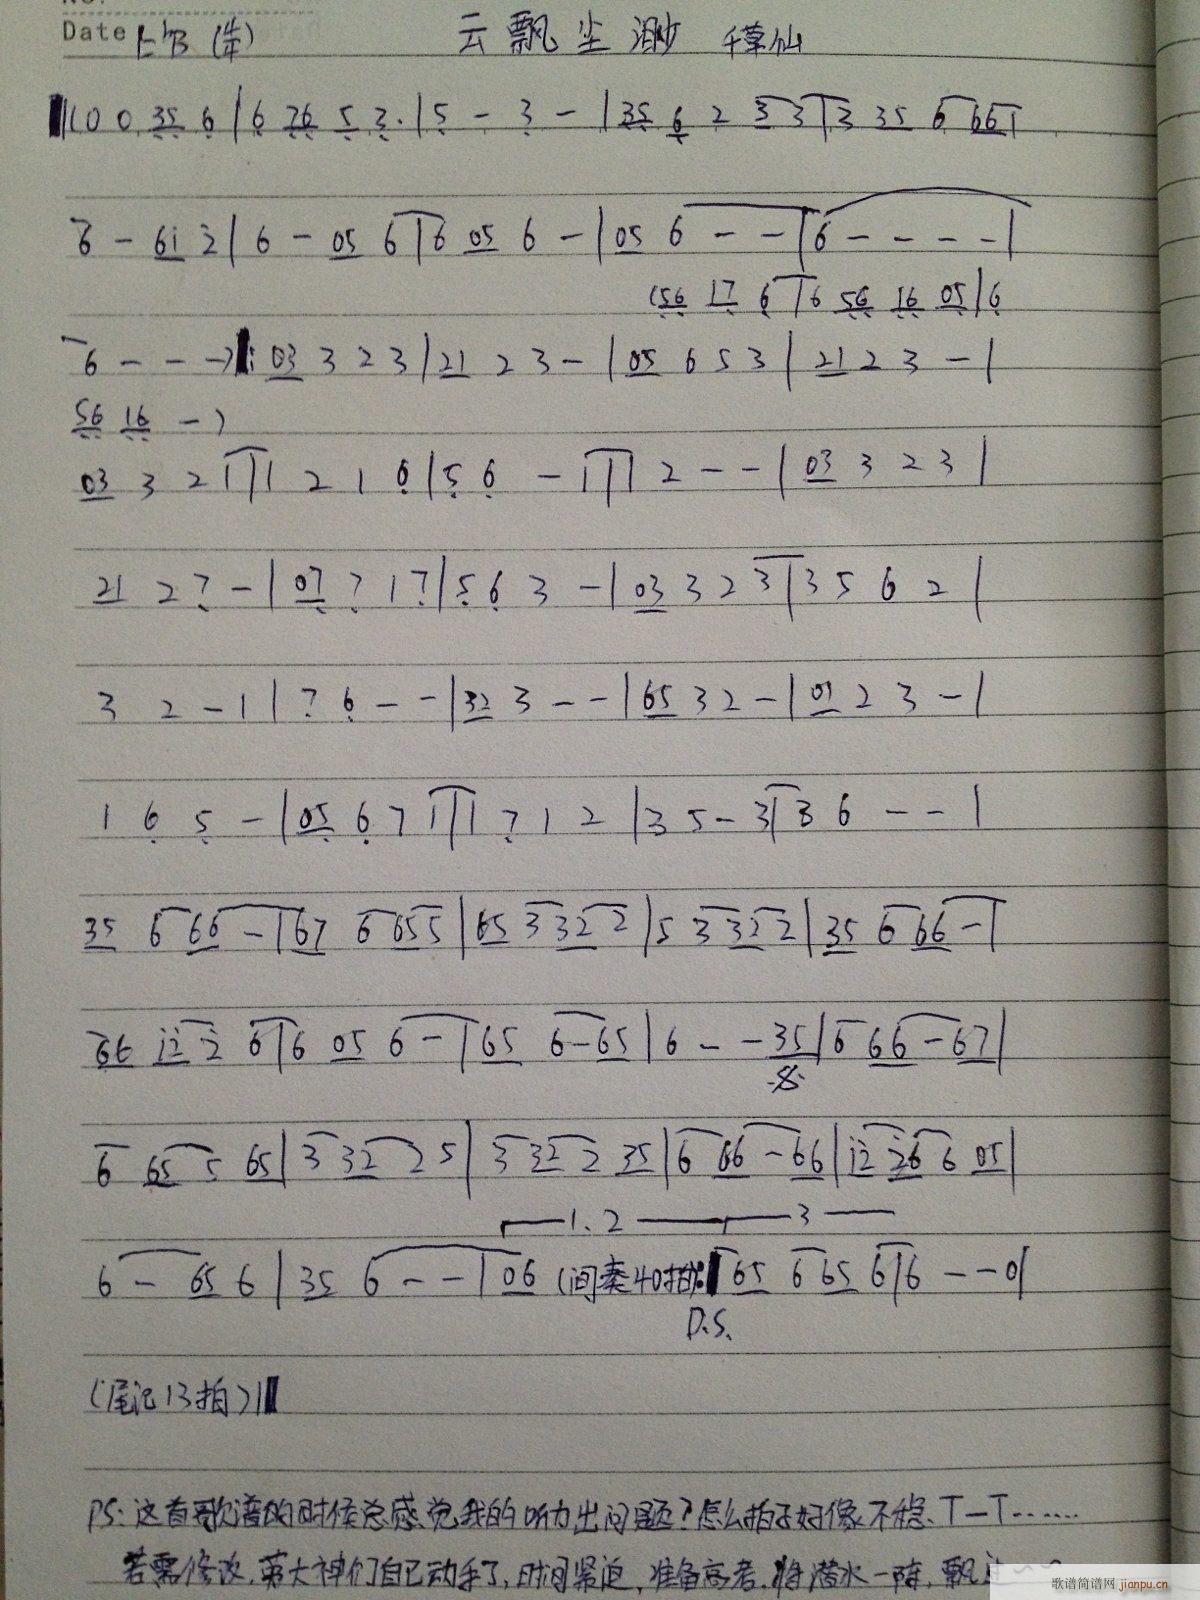 Date
云飘尘渺 千草仙
(0 0 35 6 | 6 76 5 3. | 5 - 3 - | 35 6 2 3 3 | 3 35 6 66 |
6 - 6i 2 | 6 - 05 6 | 6 05 6 - | 05 6 - - | 6 - - - - |
(56 17 6 | 6 56 16 05 | 6
6 - - -) |: 03 3 2 3 | 21 2 3 - | 05 6 5 3 | 21 2 3 - |
56 16 - )
03 3 2 1 | 1 2 1 6 | 5 6 - 1 | 1 2 - - | 03 3 2 3 |
21 2 7 - | 07 7 1 7 | 5 6 3 - | 03 3 2 3 | 3 5 6 2 |
3 2 - 1 | 7 6 - - | 32 3 - - | 65 3 2 - | 01 2 3 - |
1 6 5 - | 05 6 7 1 | 1 7 1 2 | 3 5 - 3 | 3 6 - - |
35 6 66 - | 67 6 65 5 | 65 3 32 2 | 5 3 32 2 | 35 6 66 - |
66 i2 2 6 | 6 05 6 - | 65 6 - 65 | 6 - - 35 | 6 66 - 67 |
6 65 5 65 | 3 32 2 5 | 3 32 2 35 | 6 66 - 66 | i2 26 6 05 |
1. 2 3
6 - 65 6 | 35 6 - - | 06 (间奏40拍) :| 65 6 65 6 | 6 - - 0 |
D.S.
(尾记13拍) ||
PS: 这首歌谱的时候总感觉我的听力出问题?怎么拍子好像不稳、T-T……
若需修改,大神们自己动手了,时间紧迫,准备高考,将潜水一阵,飘
歌谱简谱网 jianpu.cn